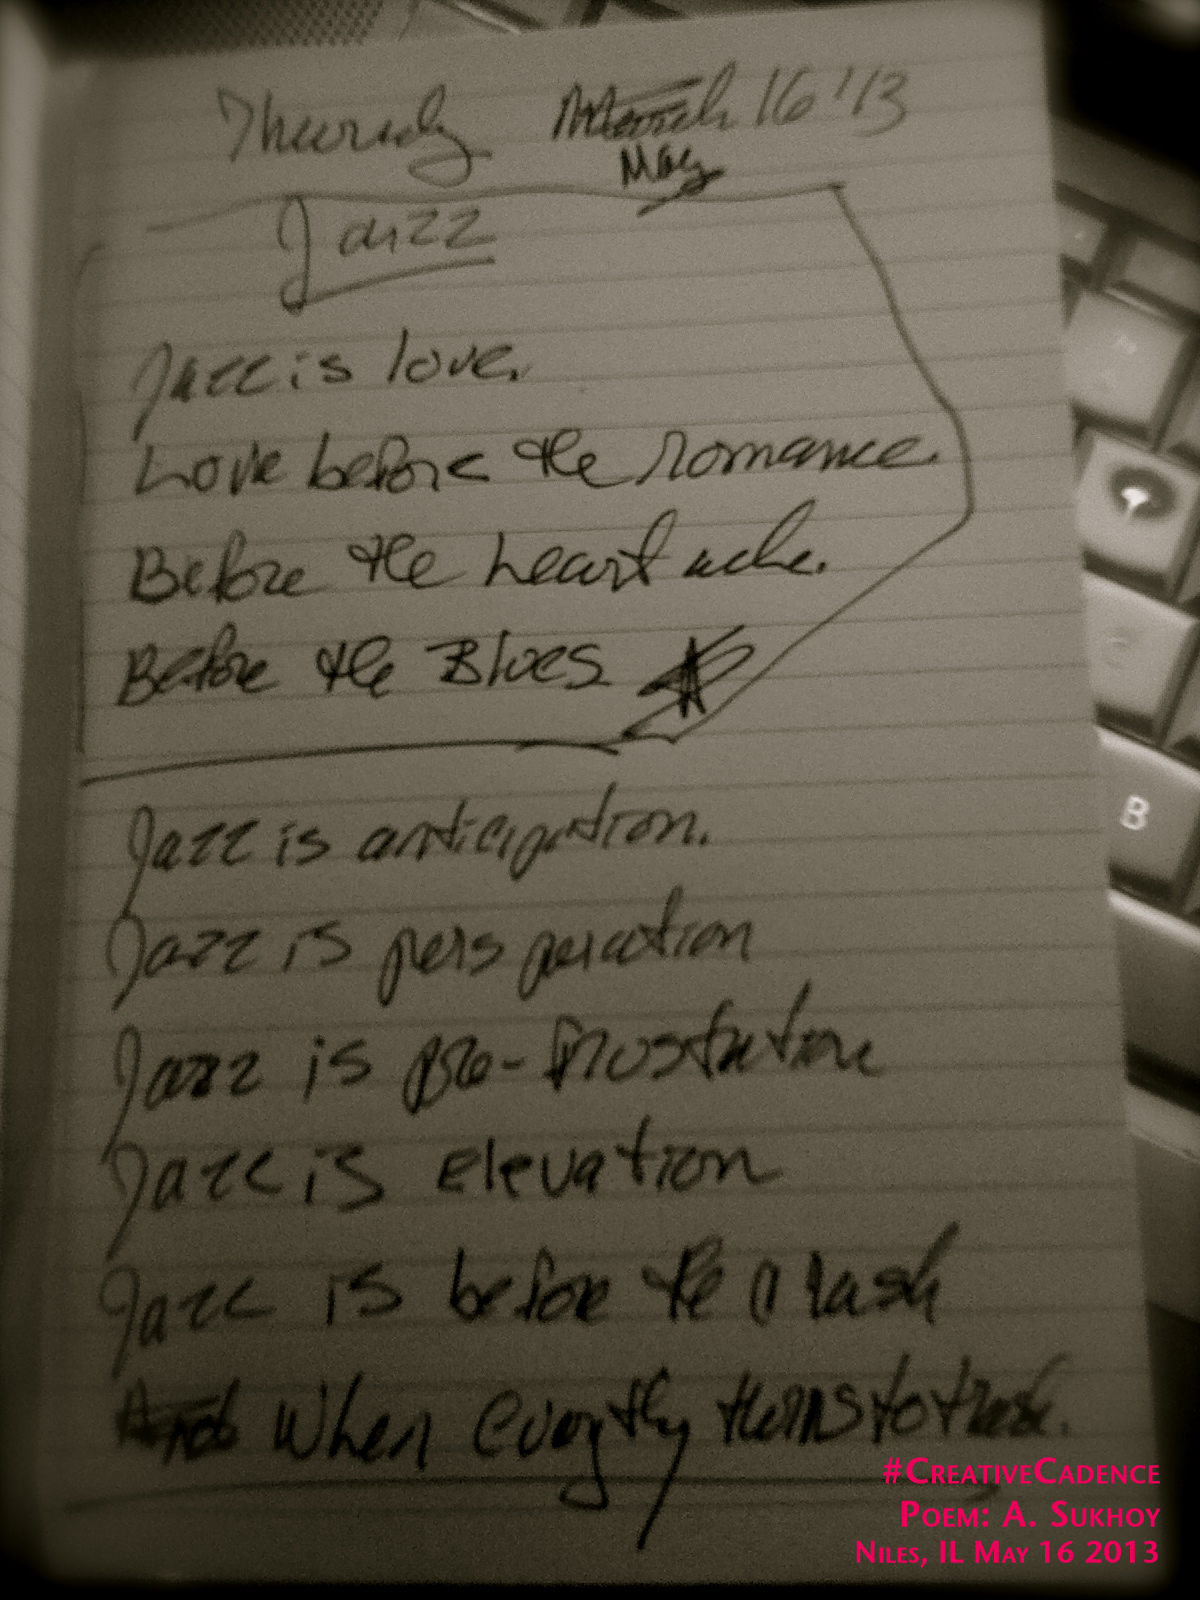 Thursday March 16 '13
May
Jazz
Jazz is love.
Love before the romance.
Before the heart ache.
Before the Blues
Jazz is anticipation.
Jazz is persperation
Jazz is pre-frustration
Jazz is elevation
Jazz is before the crash
And When everythg turns to trash.
B
#CreativeCadence
Poem: A. Sukhoy
Niles, IL May 16 2013